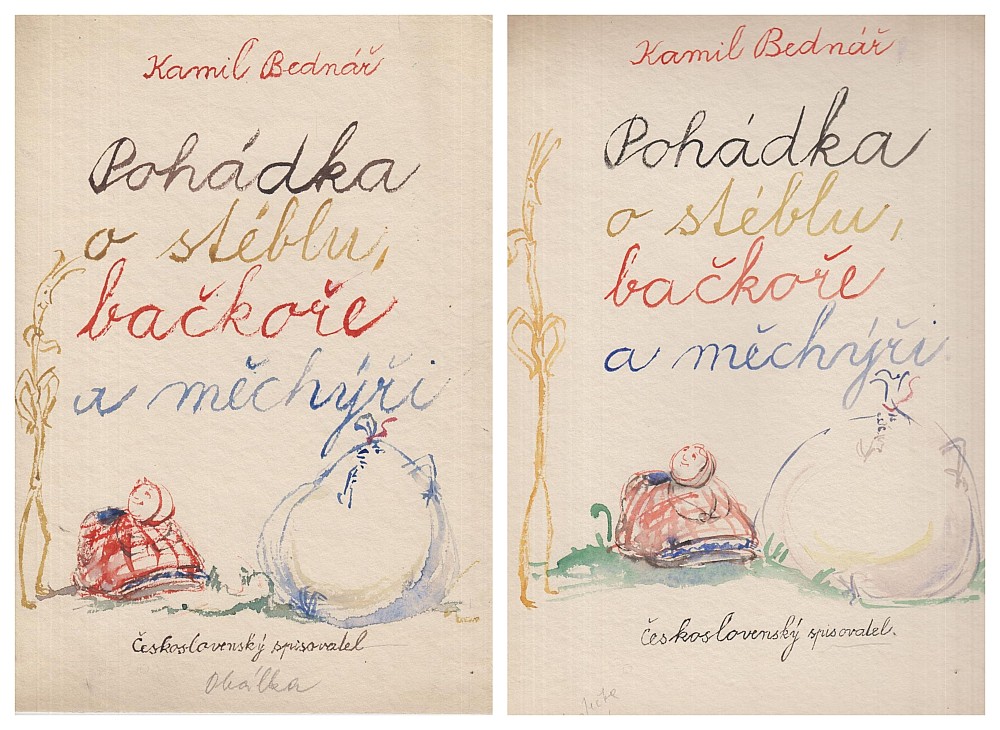 Kamil Bednář
Pohádka
o stéblu,
bačkoře
a měchýři
Československý spisovatel
Obálka
Kamil Bednář
Pohádka
o stéblu,
bačkoře
a měchýři
Československý spisovatel.